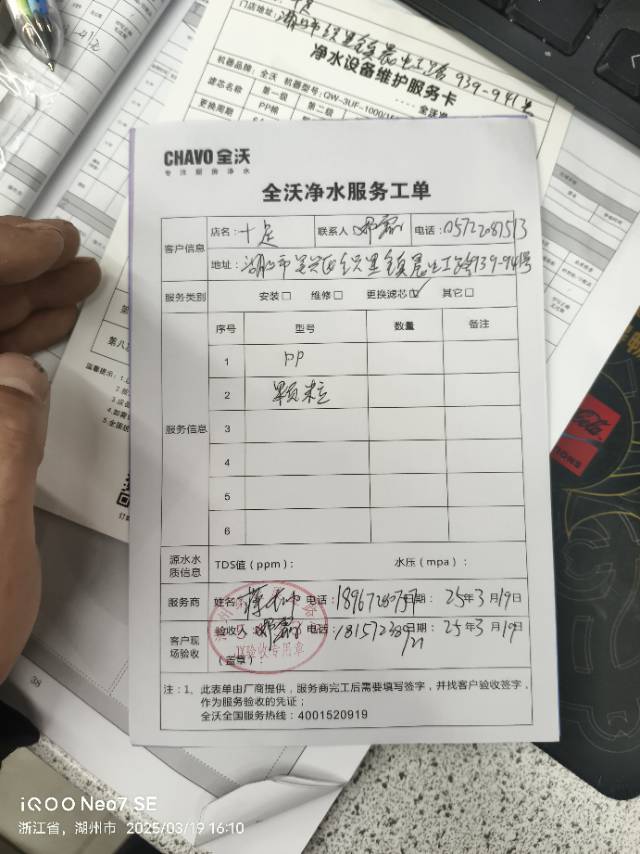 净水设备维护服务卡
机器品牌：全沃 机器型号：QW-3UF-1000/15
滤芯名称 第一级 第二级
更换周期 PP棉
CHAVO 全沃
专注厨房净水
全沃净水服务工单
客户信息 店名：十足 联系人： 电话：05722087513
地址：湖州市吴兴区织里镇 939-941号
服务类别 安装□ 维修□ 更换滤芯☑ 其它□
服务信息
序号 型号 数量 备注
1 PP
2 颗粒
3
4
5
6
源水水质信息 TDS值（ppm）： 水压（mpa）：
服务商 姓名： 电话： 日期：25年3月19日
客户现场验收 验收人： 电话： 日期：25年3月19日
（盖章）：
验收专用章
注：1、此表单由厂商提供，服务商完工后需要填写签字，并找客户验收签字，
作为服务验收的凭证；
全沃全国服务热线：4001520919
iQOO Neo7 SE
浙江省，湖州市 2025/03/19 16:10